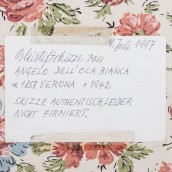 4. Juli 1997
Bleistiftskizze von
ANGELO DELL'OCA BIANCA
* 1858 VERONA + 1942
SKIZZE AUTHENTISCH, LEIDER
NICHT FIRMIERT.